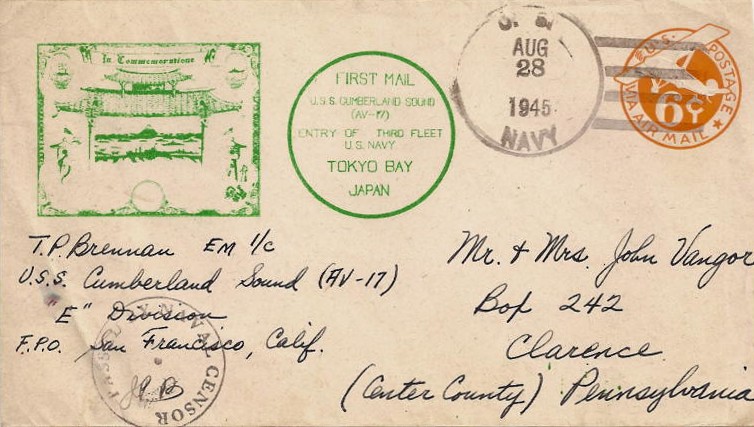 In Commemoration
FIRST MAIL
U.S.S. CUMBERLAND SOUND
(AV-17)
ENTRY OF THIRD FLEET
U.S. NAVY
TOKYO BAY
JAPAN
U. S.
AUG
28
1945
NAVY
U.S. POSTAGE
6¢
VIA AIR MAIL
T.P. Brennan EM 1/c
U.S.S. Cumberland Sound (AV-17)
"E" Division
F.P.O. San Francisco, Calif.
PASSED BY NAVAL CENSOR
Mr. & Mrs. John Vangor
Box 242
Clarence
(Center County) Pennsylvania